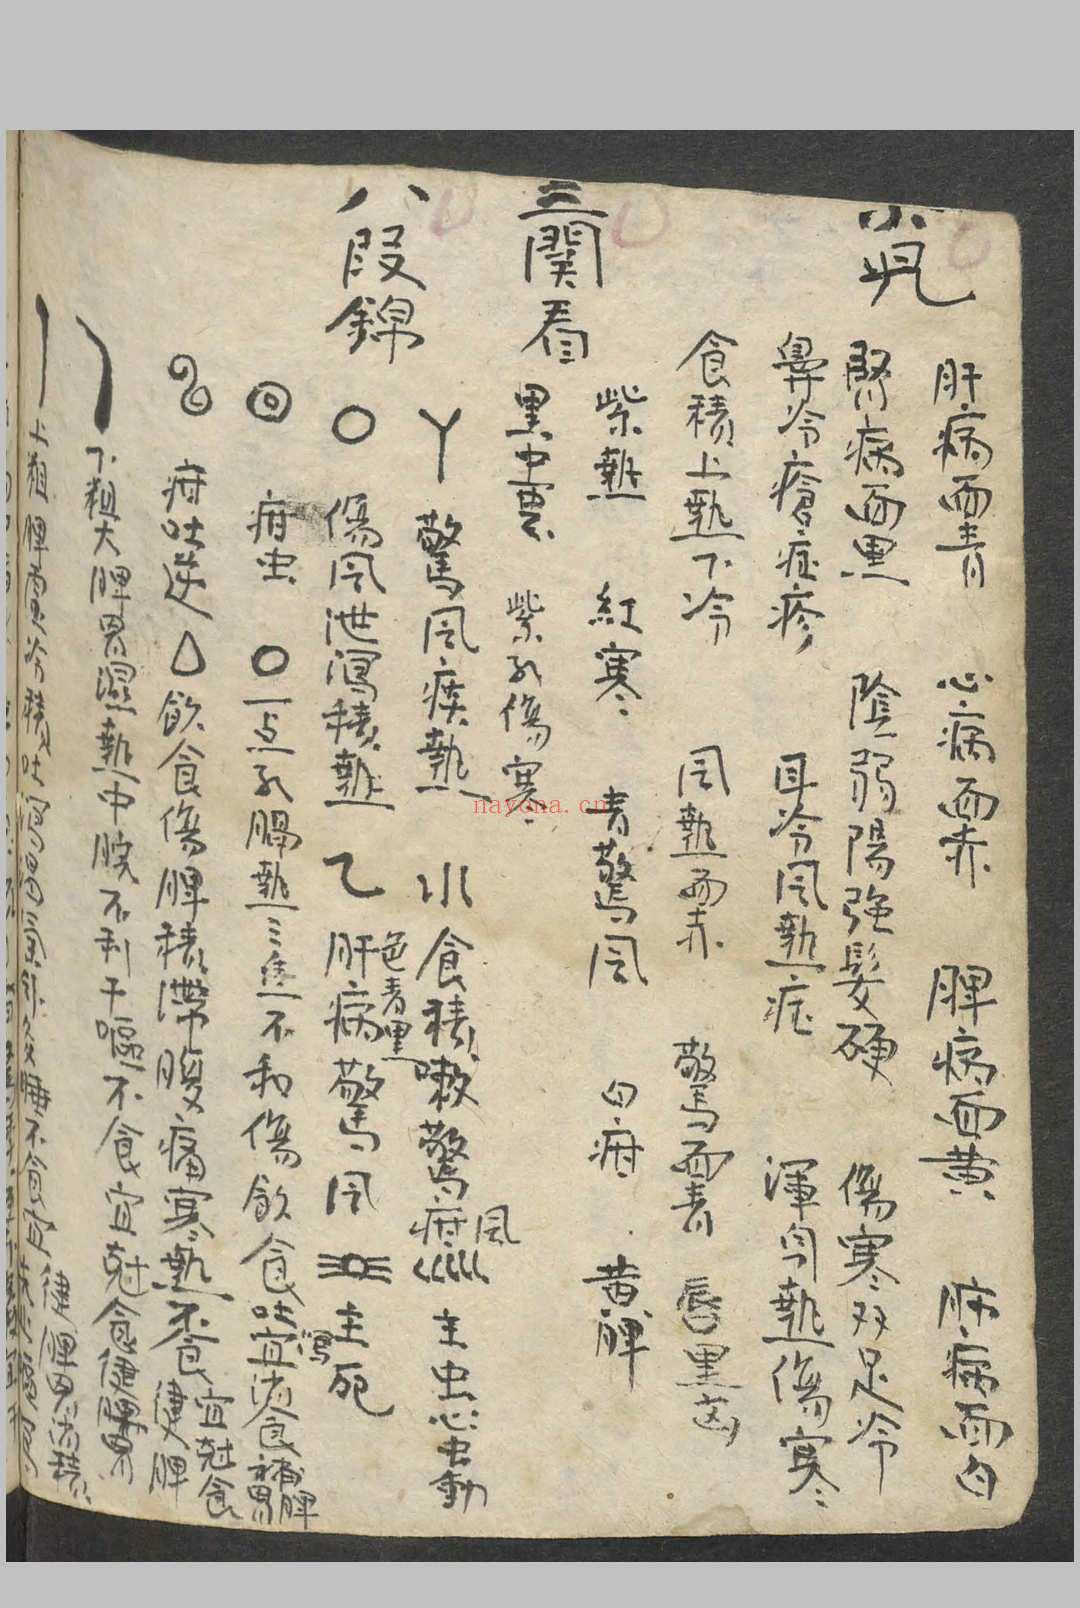 小兒
肝病面青 心病面赤 脾病面黄 肺病面白
腎病面黑 陰弱陽強髮硬 傷寒双足冷
鼻冷瘡症疹 耳冷風熱症 渾身熱傷寒
食積上熱下冷 风熱面赤 驚面青 唇黑凶
紫熱 紅寒 青驚风 白疳 黄脾
三關看
黑中惡 紫孔傷寒
八段錦
丫 驚风痰熱 小 食積嗽驚疳风 主虫心虫動
〇 傷风泄瀉積熱 乙 肝病驚风色青黑 主死
◎ 疳虫 〇一点孔腸熱三焦不和傷飲食吐瀉宜消食補脾胃
疳吐逆 △飲食傷脾積滯腹痛寒熱不食宜尅食健脾
下粗大脾胃濕熱中脘不利干嘔不食宜尅食健脾胃
上粗脾虚冷積吐瀉 不食宜 健脾胃消積
nayona.cn